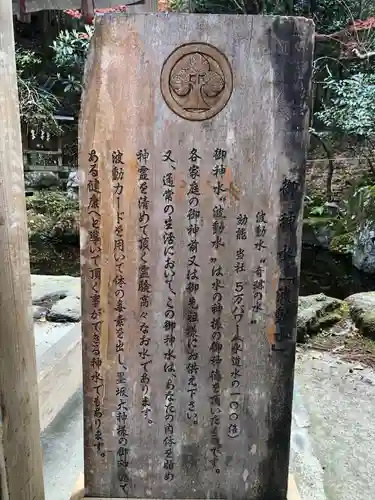 御神水 "波動水"
波動水 "奇跡の水"
効能 当社 5万パワー(水道水の一〇〇倍)
御神水 "波動水" は水の神様の御神徳を頂いた水です。
各家庭の御神前又は御先祖様にお供え下さい。
又、通常の生活において、この御神水は、あなたの肉体を始め
神霊を清めて頂く霊験高々なお水であります。
波動カードを用いて体の毒素を出し、墨坂大神様の御神力で
ある健康へと導いて頂く事ができる神水でもあります。